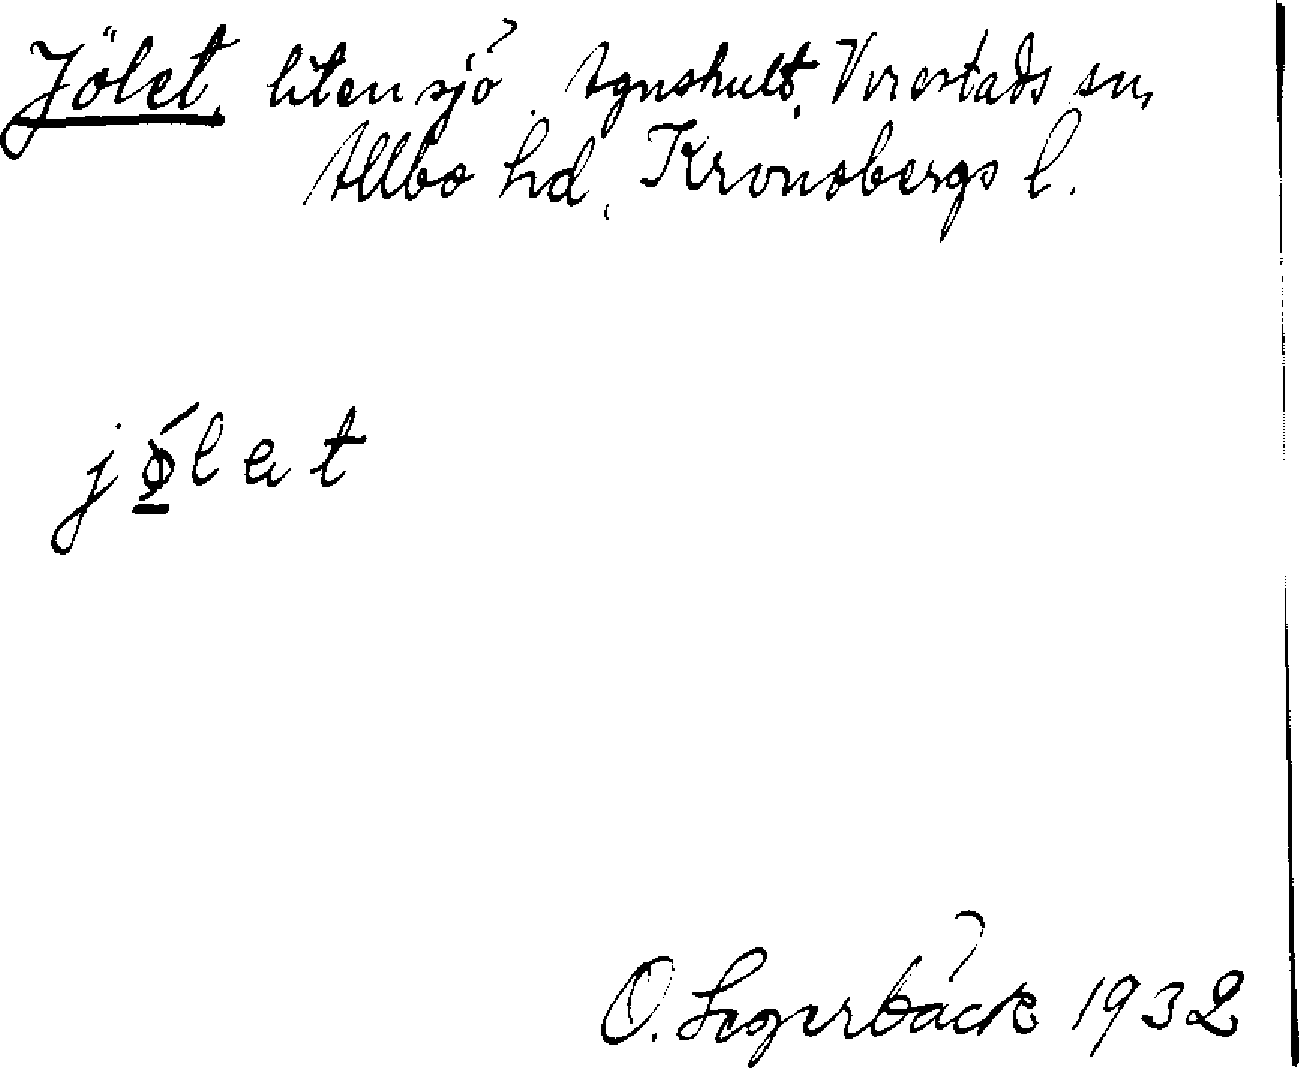 Jölet, liten sjö, Agnshult, Virestads sn,
Allbo hd, Kronobergs l.
jǿ̱lət
O. Segerbäck 1932